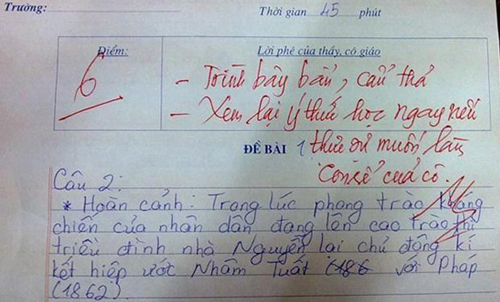 Trường:
Thời gian 45 phút
Điểm:
Lời phê của thầy, cô giáo
6
- Trình bày bẩn, cẩu thả
- Xem lại ý thức học ngay nếu
ĐỀ BÀI 1 thực sự muốn làm
con rể của cô.
Câu 2:
* Hoàn cảnh: Trong lúc phong trào kháng
chiến của nhân dân đang lên cao trào thì
triều đình nhà Nguyễn lại chủ động kí
kết hiệp ước Nhâm Tuất (186 với Pháp
(1862).